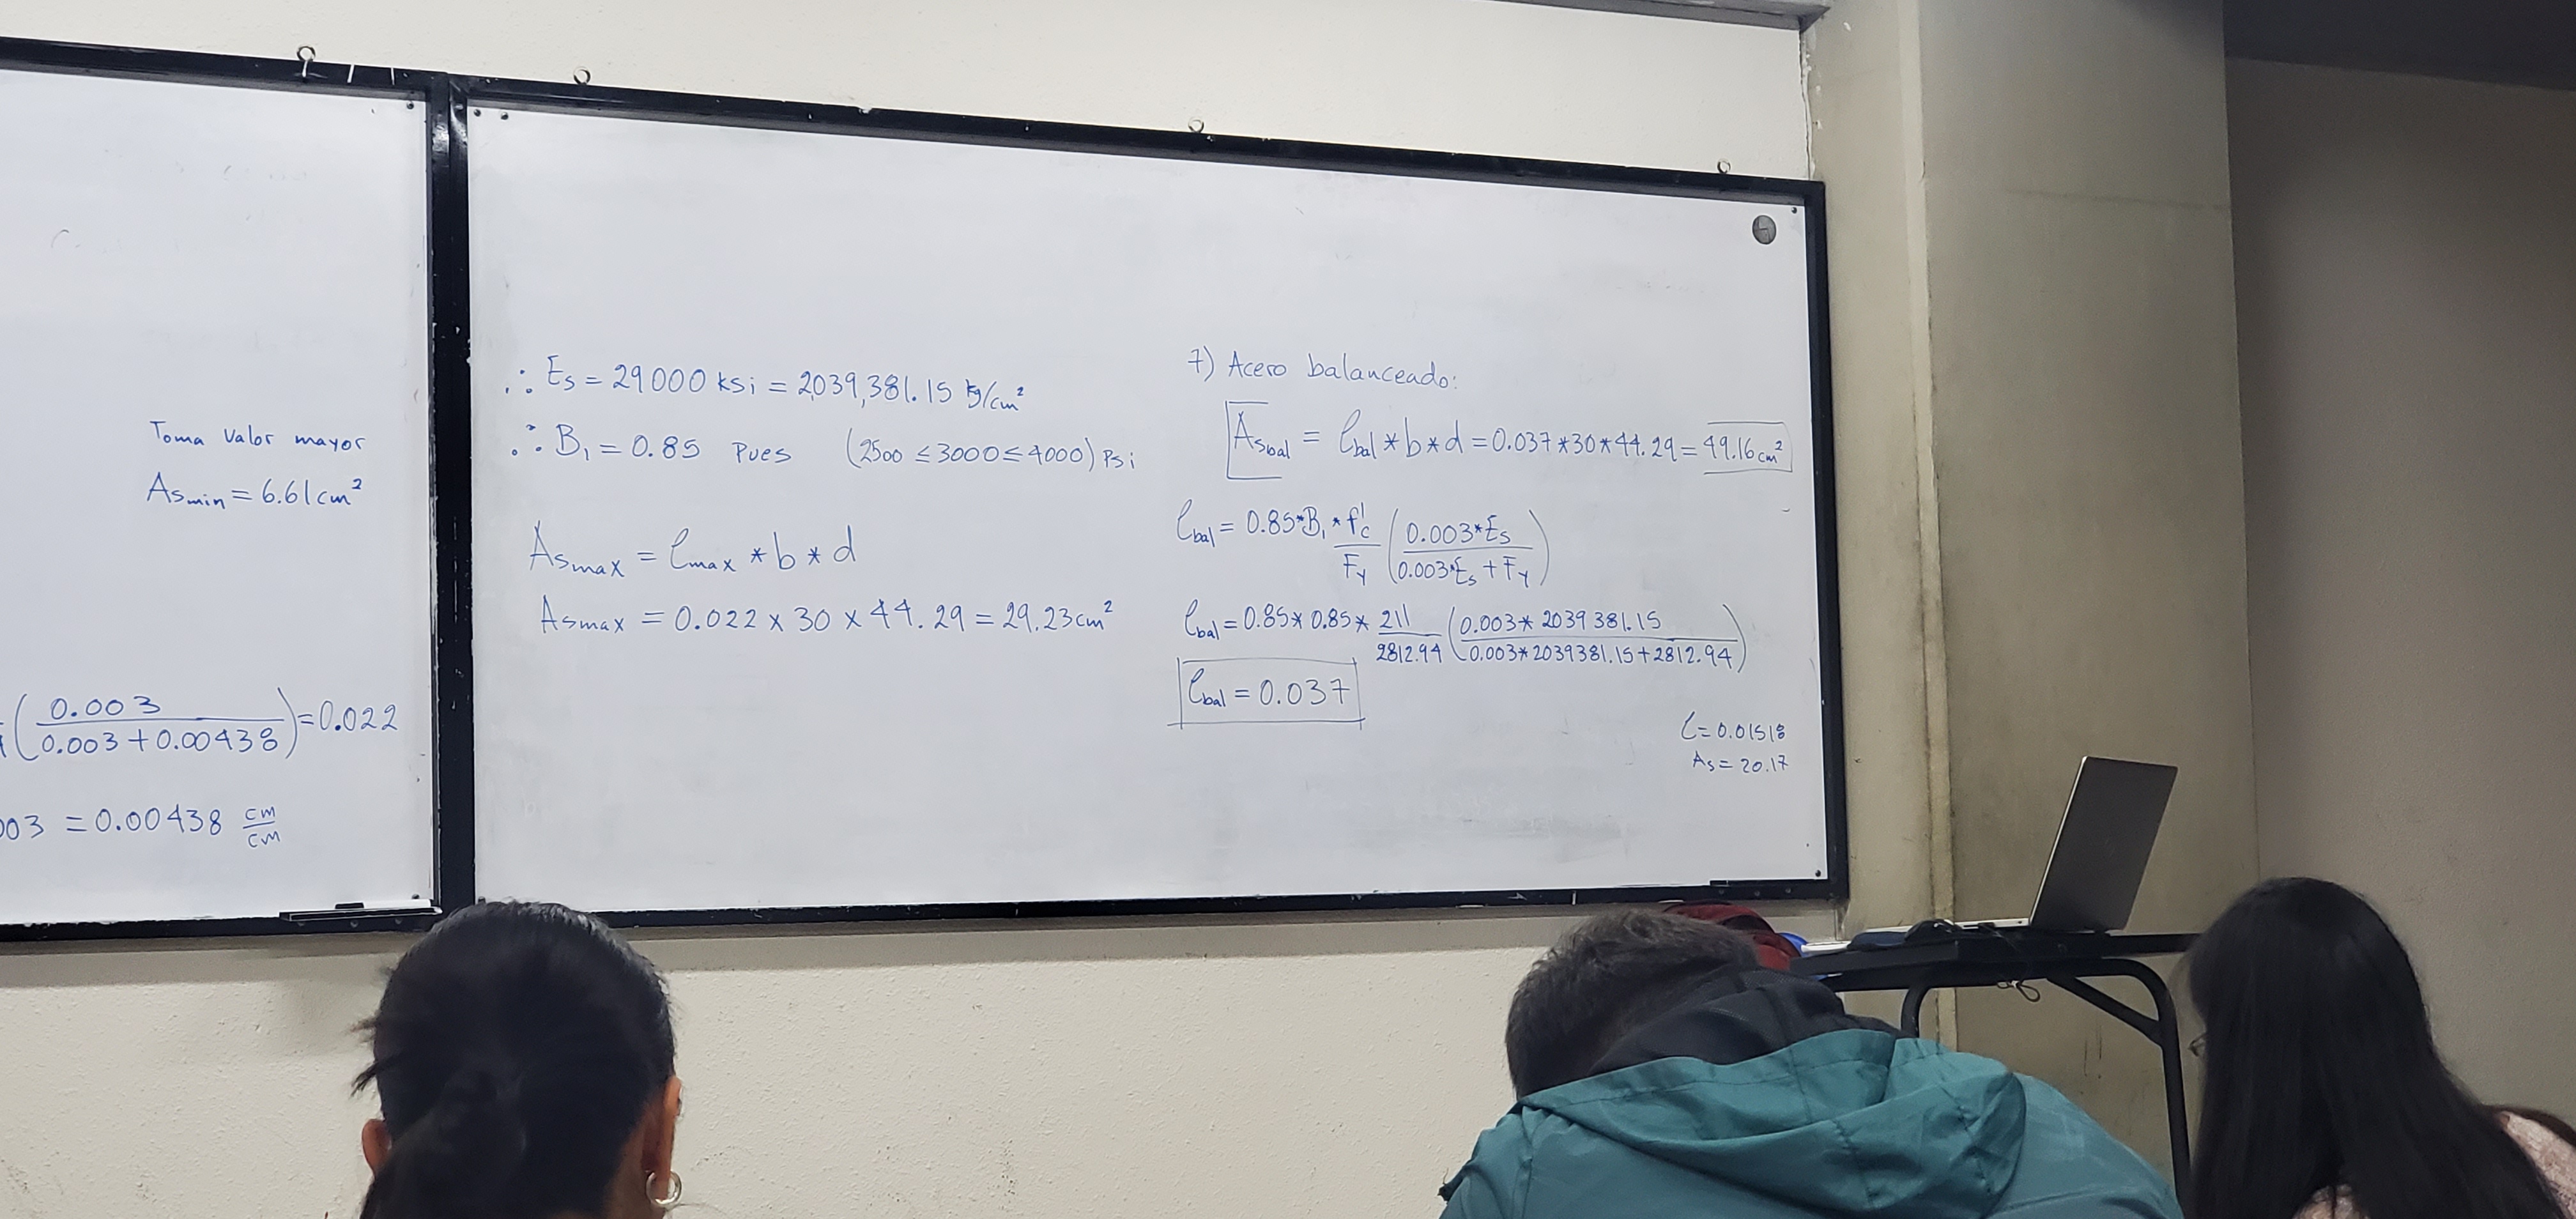 Toma valor mayor
Asmin = 6.61 cm²
(0.003 / 0.003 + 0.00438) = 0.022
003 = 0.00438 cm/cm
∴ Es = 29000 ksi = 2,039,381.15 kg/cm²
∴ B₁ = 0.85 pues (2500 ≤ 3000 ≤ 4000) Psi
Asmax = ρmax * b * d
Asmax = 0.022 x 30 x 44.29 = 29.23 cm²
7) Acero balanceado:
Asbal = ρbal * b * d = 0.037 * 30 * 44.29 = 49.16 cm²
ρbal = 0.85 * B₁ * f'c / Fy (0.003 * Es / 0.003 * Es + Fy)
ρbal = 0.85 * 0.85 * 211 / 2812.94 (0.003 * 2039381.15 / 0.003 * 2039381.15 + 2812.94)
ρbal = 0.037
ρ = 0.01518
As = 20.17